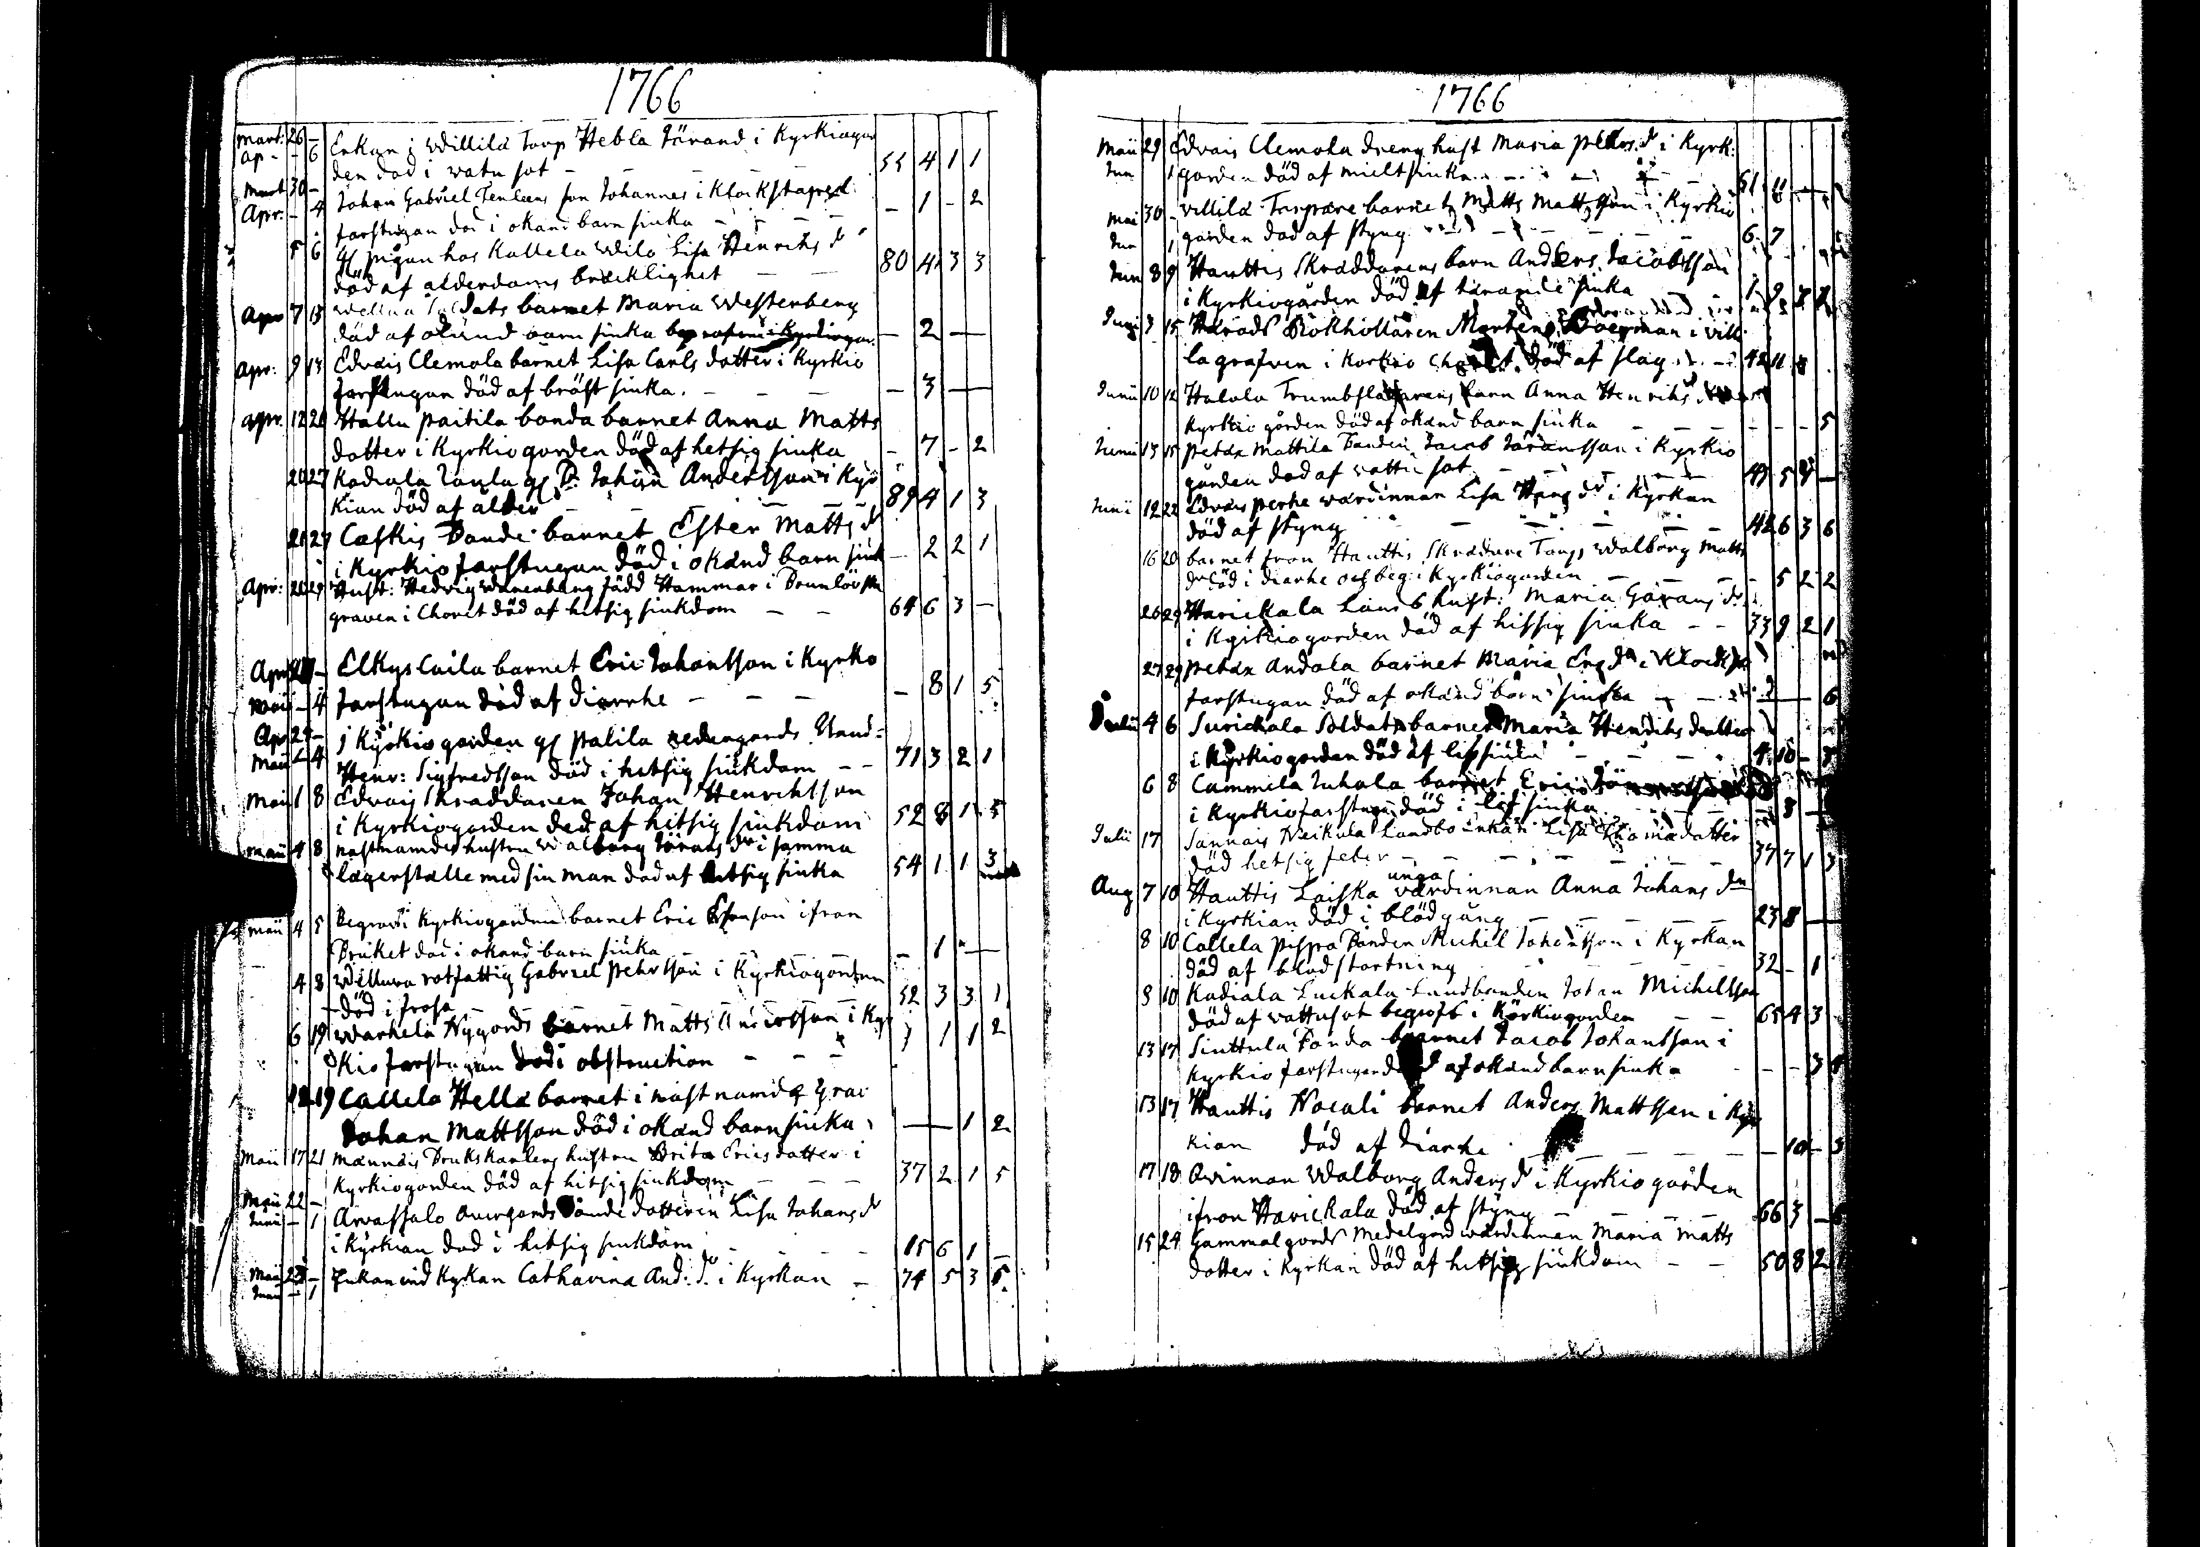 1766
Mart: 26 - Enkan i Willilä Torp Hebla Jörand i Kyrkiogor
Ap - - 6 den död i watu sot - - 55 4 1 1
Mart 30 - Johan Gabriel son Johannes i Klockstapel
Apr. - 4 farstugan död i okänd barn siuka - - - 1 - 2
5 6 gl pigan hos Kallela Wilo Lisa Henriks dr
död af alderdoms bräcklighet - - 80 4 3 3
Apr 7 13 Soldats barnet Maria Westenberg
död af okänd barn siuka - 2 -
Apr: 9 13 Edvais Clemola barnet Lisa Carls dotter i Kyrkio
farstugan död af bröst siuka. - - - - 3 -
Apr. 12 20 Hallu paitila bonda barnet Anna Matts
dotter i Kyrkiogorden död af hetsig siuka - 7 - 2
20 27 Kadiala gl Johan Andersson i Kyr
kian död af alder - - - 89 4 1 3
21 27 Caskis Bonde barnet Ester Matts dr
i Kyrkiofarstugan död i okänd barn siuk - 2 2 1
Apr: 26 29 Hust: Hedvig Wanenberg född Hammar i
graven i Choret död af hitsig siukdom - - 64 6 3 -
Apr - Elkys Caila barnet Eric Johansson i Kyrko
Maii - 4 farstugan död af diarrhe - - - - 8 1 5
Apr 29 - i Kyrkiogorden gl palila nedangords
Maii - 4 Henr: Sigfredsson död i hetsig siukdom - - 71 3 2 1
Maii 1 8 Edvais Skräddaren Johan Henrichsson
i Kyrkiogorden död af hitsig siukdom 52 8 1 5
Maii 4 8 nästnamde hustru Walborg Jörans dr i samma
lägerställe med sin man död af hetsig siuka 54 1 1 3
Maii 4 5 Begrovs i Kyrkiogorden barnet Eric ifron
Bruket död i okänd barn siuka - - - 1 - -
4 8 rotfattig Gabriel pehrsson i Kyrkiogorden
död i frosa - - - 52 3 3 1
6 19 Warkela Nygords barnet Matts Andersson i Kyr
kio farstugan död i obstruction - - - 1 1 2
12 19 Callela Hellä barnet i nästnamde
Johan Mattsson död i okänd barn siuka - 1 2
Maii 17 21 Mannäis Brukskarlens hustru Brita Erics dotter i
Kyrkiogorden död af hitsig siukdom - - - 37 2 1 5
Maii 22 - Arvassalo övergords Bonde dotteren Lisa Johans dr
Junii - 1 i Kyrkian död i hitsig siukdom - - - 15 6 1 -
Maii 28 - Enkan vid Kyrkan Catharina And: dr i Kyrkan - 74 5 3 5
Junii - 1
1766
Maii 29 Edvais Clemola dreng hust Maria Pehrs dr i Kyrk:
Jun 1 gorden död af mielt siuka - - - 61 11 - -
Mai 30 - Villilä Torpare barnet Matts Mattsson i Kyrkio
Jun 1 gorden död af styng - - - - 6 7
Jun 8 9 Hauttis Skräddarens barn Anders Jacobsson
i Kyrkiogården död af tärande siuka 1 9 2 2
Junii 3 15 Härads Bokhollaren Morten Boerman i Vill
la grafven i Kyrkio död af slag - - 42 11 8
Junii 10 12 Halola Trumbslagarens barn Anna Henriks
Kyrkio gården död af okänd barn siuka - - - - - 5
Junii 13 15 petäx Mattila Bonden Jacob Jöransson i Kyrkio
gården död af vattu sot - - - 49 5 -
Junii 12 22 Edvais perhe värdinnan Lisa dr i Kyrkan
död af styng - - - - - 42 6 3 6
16 20 barnet från Hauttis Skräddare Torp Walborg Matts
dr död i diarhe och beg: i Kyrkiogården - - - 5 2 2
26 29 Harickala hust: Maria Görans dr
i Kyrkiogorden död af hissig siuka - - 33 9 2 1
27 29 petäx Andola barnet Maria Ers dr i Klockst
farstugan död af okänd barn siuka - - - 6
Julii 4 6 Surickala Soldats barnet Maria Henriks dotter
i Kyrkiogorden död af - - - 4 10 - 3
6 8 Cummila Juhola barnet Eric
i Kyrkiofarstugu död i siuka - - - 8 -
Julii 17 Sannais Neikula Landbo Enkan Lisa Thomædotter
död hetsig feber - - - - - 37 7 1 3
Aug 7 10 Hauttis Laiska unga värdinnan Anna Johans dr
i Kyrkian död i blodgång - - - - 23 8 -
8 10 Callela pispa Bonden Michel Johansson i Kyrkan
död af blodstörtning - - - - 32 - 1
8 10 Kadiala Luckala Landbonden Johan Michelsson
död af vattusot begrofs i Kyrkiogorden - - 65 4 3
13 17 Siuttula Bonda barnet Jacob Johansson i
Kyrkio farstugan död af okänd barnsiuka - - - 3
13 17 Hauttis Nocali barnet Anders Mattsson i Kyr
kian död af diarhe - - - - 10 - 3
17 18 Qvinnan Walborg Anders dr i Kyrkiogården
ifron Harickala död af styng - - - 66 3 - 6
15 24 Gammalgords Medelgord värdinnan Maria Matts
dotter i Kyrkan död af hetsig siukdom - - 50 8 2 1